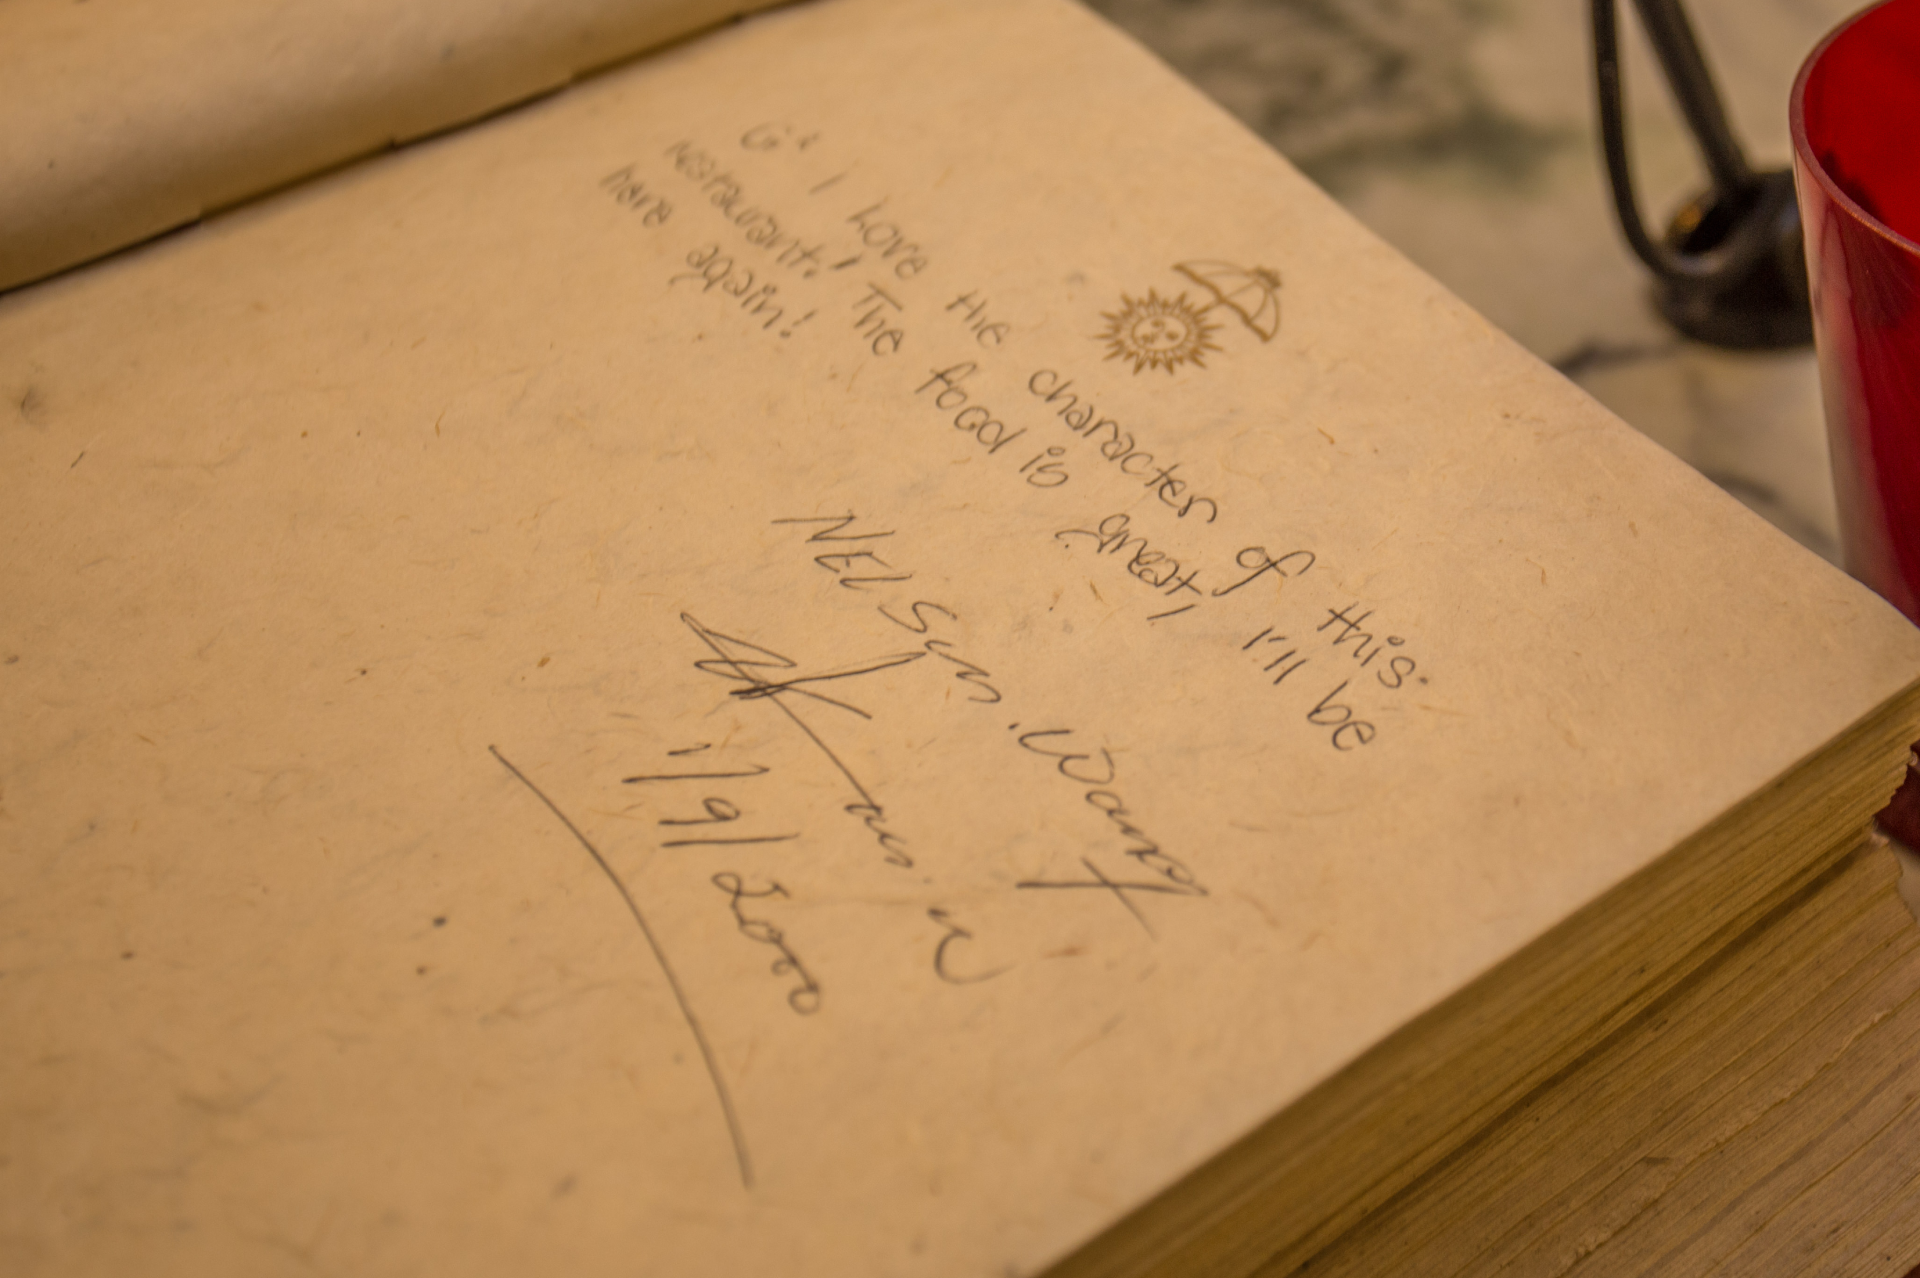 I Love the character of this
restaurant! The food is great, I'll be
here again!
NELSON. Wang
1/9/2000